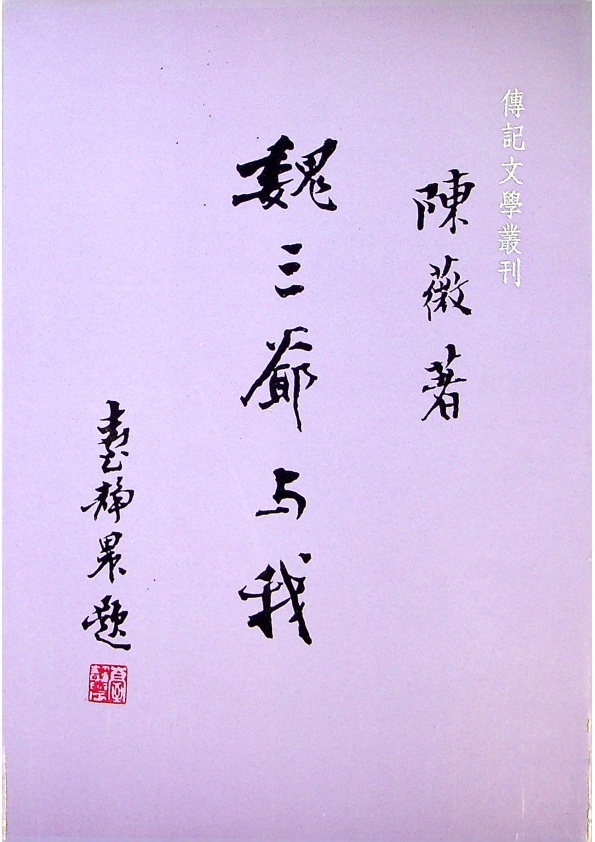 傳記文學叢刊
陳薇著
魏三爺与我
臺静農題